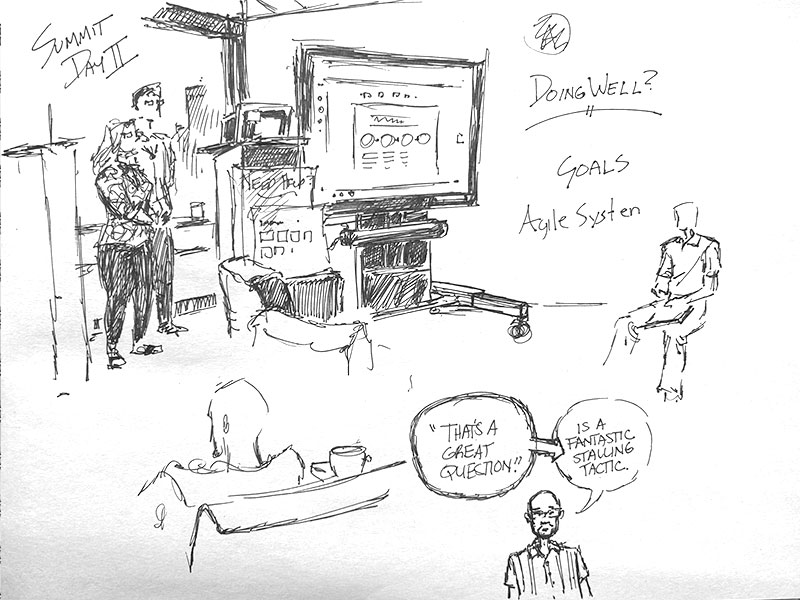 SUMMIT
DAY II
DOING WELL?
GOALS
Agile System
NEED HELP?
"THAT'S A
GREAT
QUESTION!"
IS A
FANTASTIC
STALLING
TACTIC.